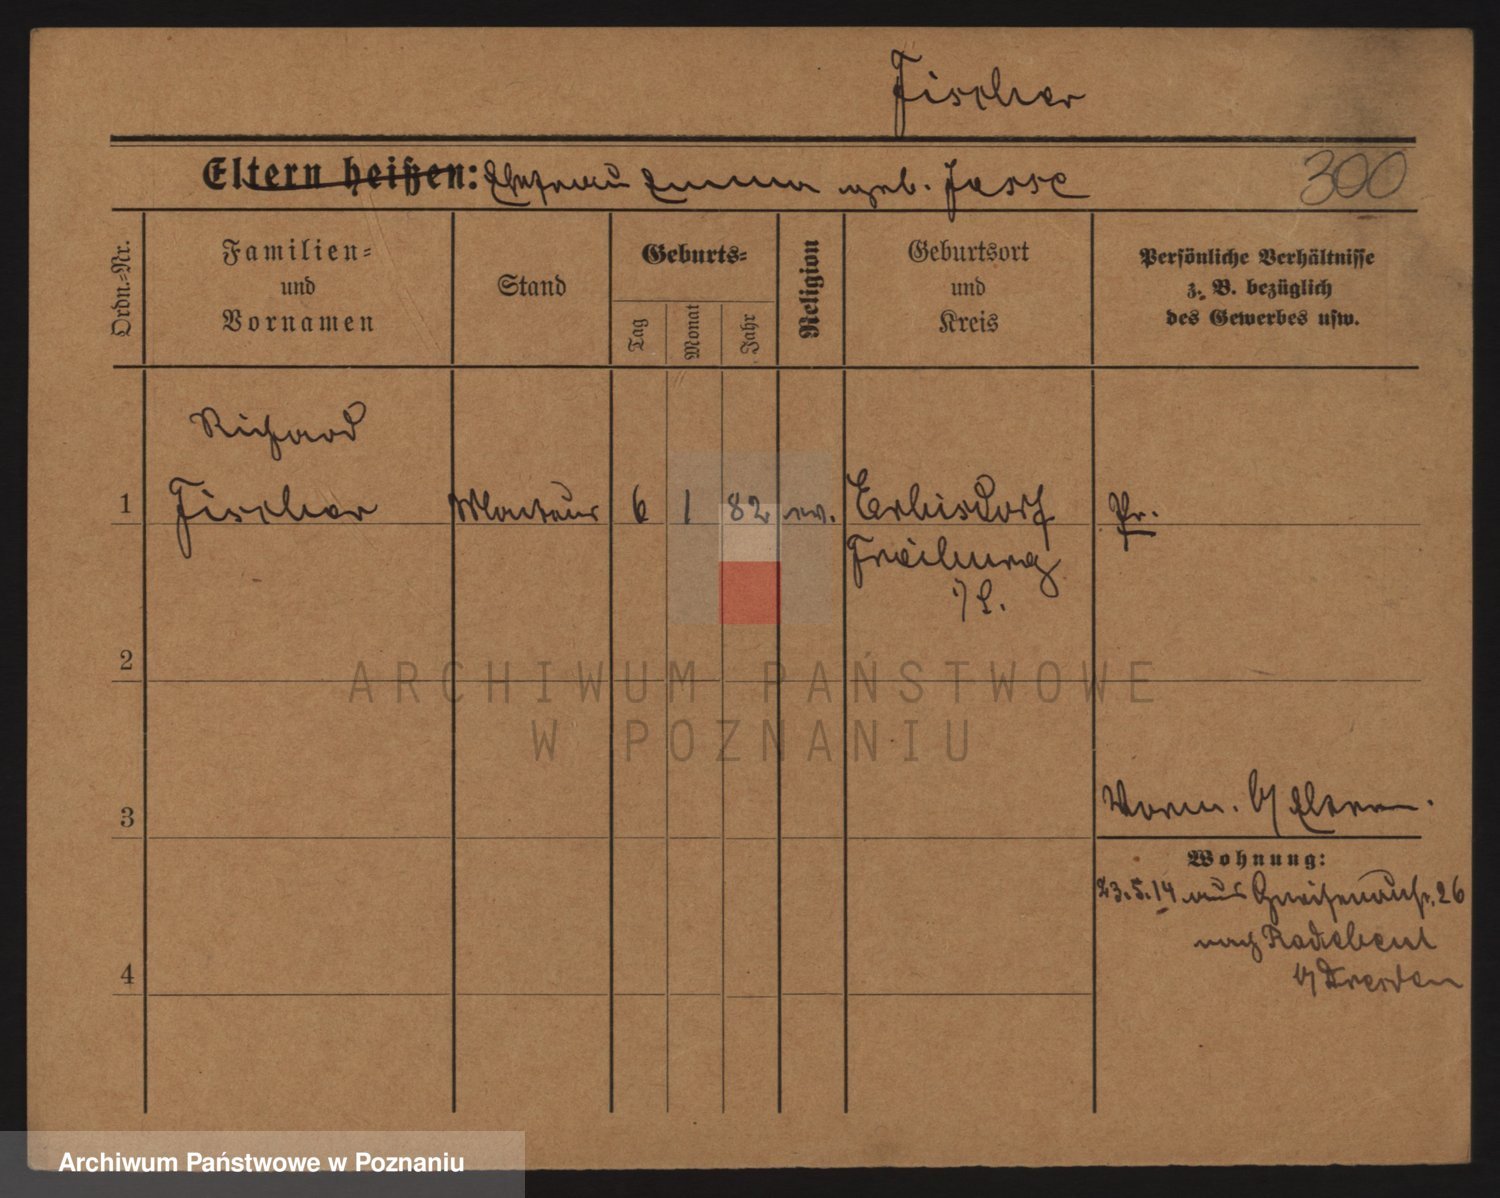 Fischer
Eltern heißen: Ehefrau Emma geb. Jesse
300
Ordn.-Nr.
Familien- und Vornamen
Stand
Geburts-
Tag
Monat
Jahr
Religion
Geburtsort und Kreis
Persönliche Verhältnisse
z. B. bezüglich
des Gewerbes usw.
Richard
1 Fischer Monteur 6 1 82 ev. Erbisdorf Pr.
Freiburg
i/S.
2
ARCHIWUM PAŃSTWOWE
W POZNANIU
3
b/ Eltern.
Wohnung:
23.5.14 aus Gneisenaustr. 26
nach Radebeul
b/ Dresden
4
Archiwum Państwowe w Poznaniu